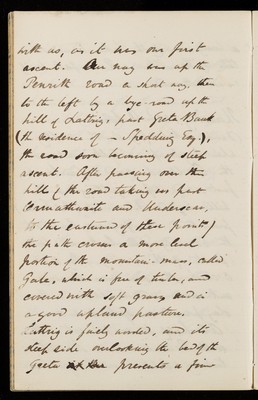 with us, as it was our first
ascent. Our way was up the
Penrith road a short way, then
to the left by a bye-road up the
hill of Latrig, past Greta Bank
(the residence of — Spedding Esq.),
the road soon becoming of steep
ascent. After passing over this
hill (the road taking us past
Ormathwaite and Underscar,
to the eastward of these points)
the path crosses a more level
portion of the mountain-mass, called
Gale, which is free of timber, and
covered with soft grass and is
a good upland pasture.
Latrig is finely wooded, and its
steep side overlooking the bed of the
Greta presents a fine